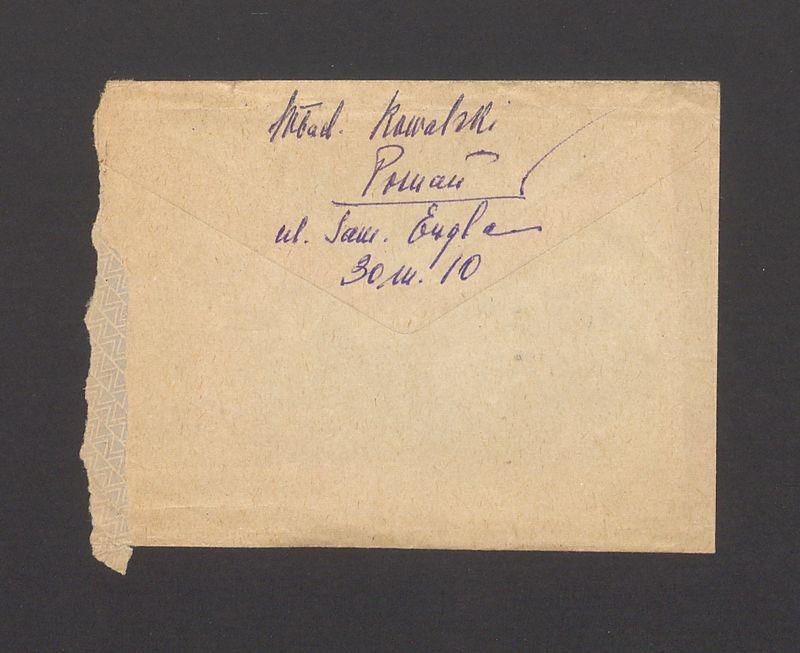 Wład. Kowalski
Poznań
ul. Sam. Engla
30 m. 10